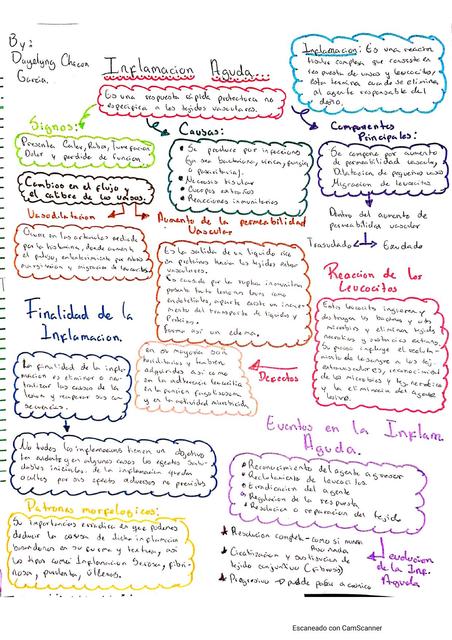 By:
Dayelyng Chacon
Garcia.
Inflamacion Aguda...
Inflamacion: Es una reaccion
tisular compleja que consiste en
respuesta de vasos y leucocitos
esta termina cuando se elimina
al agente responsable del
daño.
Es una respuesta rápida protectora no
especifica a los tejidos vasculares.
Signos:
Presenta Calor, Rubor, Tumefaccion
Dolor y perdida de funcion
Causas:
• Se produce por infecciones
(ya sea bacteriana, virica, fungica
o parasitaria).
• Necrosis tisular
• Cuerpos extraños
• Reacciones inmunitarias
Componentes
Principales:
Se compone por aumento
de permeabilidad vascular,
Dilatacion de pequeños vasos
Migracion de leucocitos
Dentro del aumento de
permeabilidad vascular
Trasudado Exudado
Cambios en el flujo y
el calibre de los vasos.
Vasodilatacion
Ocurre en las arteriolas mediado
por la histamina, donde aumenta
el flujo, enlentecimiento
y migracion de leucocitos
Aumento de la permeabilidad
Vascular
Es la salida de un liquido rico
en proteinas hacia los tejidos extra
vasculares.
Es causada por la
endoteliales, aparte existe un incre-
mento del transporte de liquidos y
Proteinas.
Forma asi un edema.
Reaccion de los
Leucocitos
Estos leucocitos ingieren y
destruyen las bacterias y otros
microbios y eliminan tejidos
necroticos y sustancias extrañas.
Su proceso implica el recluta-
miento de la sangre a los tej.
extravasculares, reconocimiento
de los microbios y tej. necroticos
y la eliminacion del agente
Finalidad de la
Inflamacion.
La finalidad de la infla-
macion es eliminar o neu-
tralizar las causas de la
lesion y reparar sus con-
secuencias.
En su mayoria son
hereditarios y tambien
adquiridos asi como
en la adherencia leucocitica
la funcion fagolisosomica
y en la actividad microbicida
Defectos
No todas las inflamaciones tienen un objetivo
tan evidente y en algunos casos los efectos
iniciales de la inflamacion quedan
ocultos por sus efectos adversos no previstos
Eventos en la Inflam.
Aguda.
• Reconocimiento del agente agresor
• Reclutamiento de leucocitos
• Erradicacion del agente
• Regulacion de la respuesta
• Resolucion o reparacion del tejido
Patrones morfologicos:
Su importancia erradica en que podemos
deducir la causa de dicha inflamacion
basandonos en su forma y textura, asi
los tipos como: Inflamacion Serosa, fibri-
nosa, purulenta, ulceras.
Resolucion complet - como si nunca
paso nada
Cicatrizacion y sustitucion de
tejido conjuntivo (Fibrosis)
Progresivo → puede pasar a cronico
Evolucion
de la Inf.
Aguda
Escaneado con CamScanner